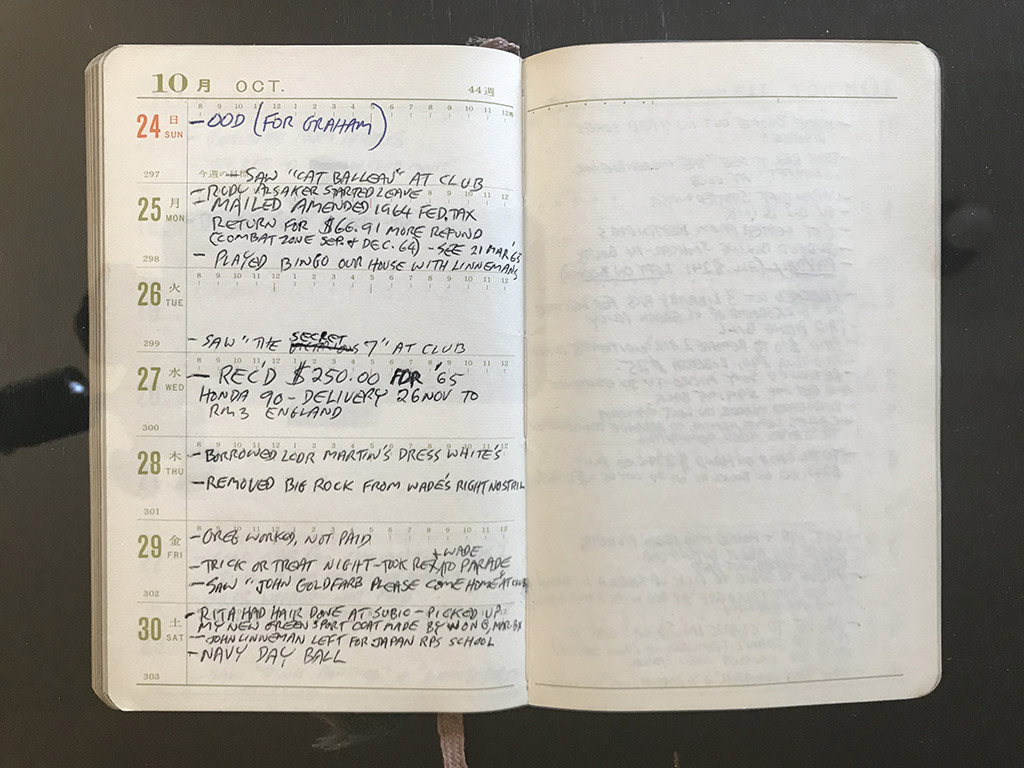 10月 OCT. 44週
8 9 10 11 12 1 2 3 4 5 6 7 8 9 10 11 12
24 日 SUN
- OOD (FOR GRAHAM)
297 今週の目標
- SAW "CAT BALLEAU" AT CLUB
25 月 MON
- RUDY ALSAKER STARTED LEAVE
- MAILED AMENDED 1964 FED. TAX
RETURN FOR $66.91 MORE REFUND
(COMBAT ZONE SEP. & DEC. 64) - SEE 21 MAR '65
298
- PLAYED BINGO OUR HOUSE WITH LINNEMANS
8 9 10 11 12 1 2 3 4 5 6 7 8 9 10 11 12
26 火 TUE
299
- SAW "THE SECRET 7" AT CLUB
27 水 WED
- REC'D $250.00 FOR '65
HONDA 90 - DELIVERY 26 NOV TO
RM3 ENGLAND
300
8 9 10 11 12 1 2 3 4 5 6 7 8 9 10 11 12
28 木 THU
- BORROWED LCDR MARTIN'S DRESS WHITE'S
- REMOVED BIG ROCK FROM WADE'S RIGHT NOSTRIL
301
8 9 10 11 12 1 2 3 4 5 6 7 8 9 10 11 12
29 金 FRI
- GREG WORKED, NOT PAID
- TRICK OR TREAT NIGHT - TOOK REX + WADE TO PARADE
- SAW "JOHN GOLDFARB PLEASE COME HOME" AT CLUB
302
30 土 SAT
- RITA HAD HAIR DONE AT SUBIC - PICKED UP
MY NEW GREEN SPORT COAT MADE BY WONG, MAR. BX
- JOHN LINNEMAN LEFT FOR JAPAN RPS SCHOOL
- NAVY DAY BALL
303